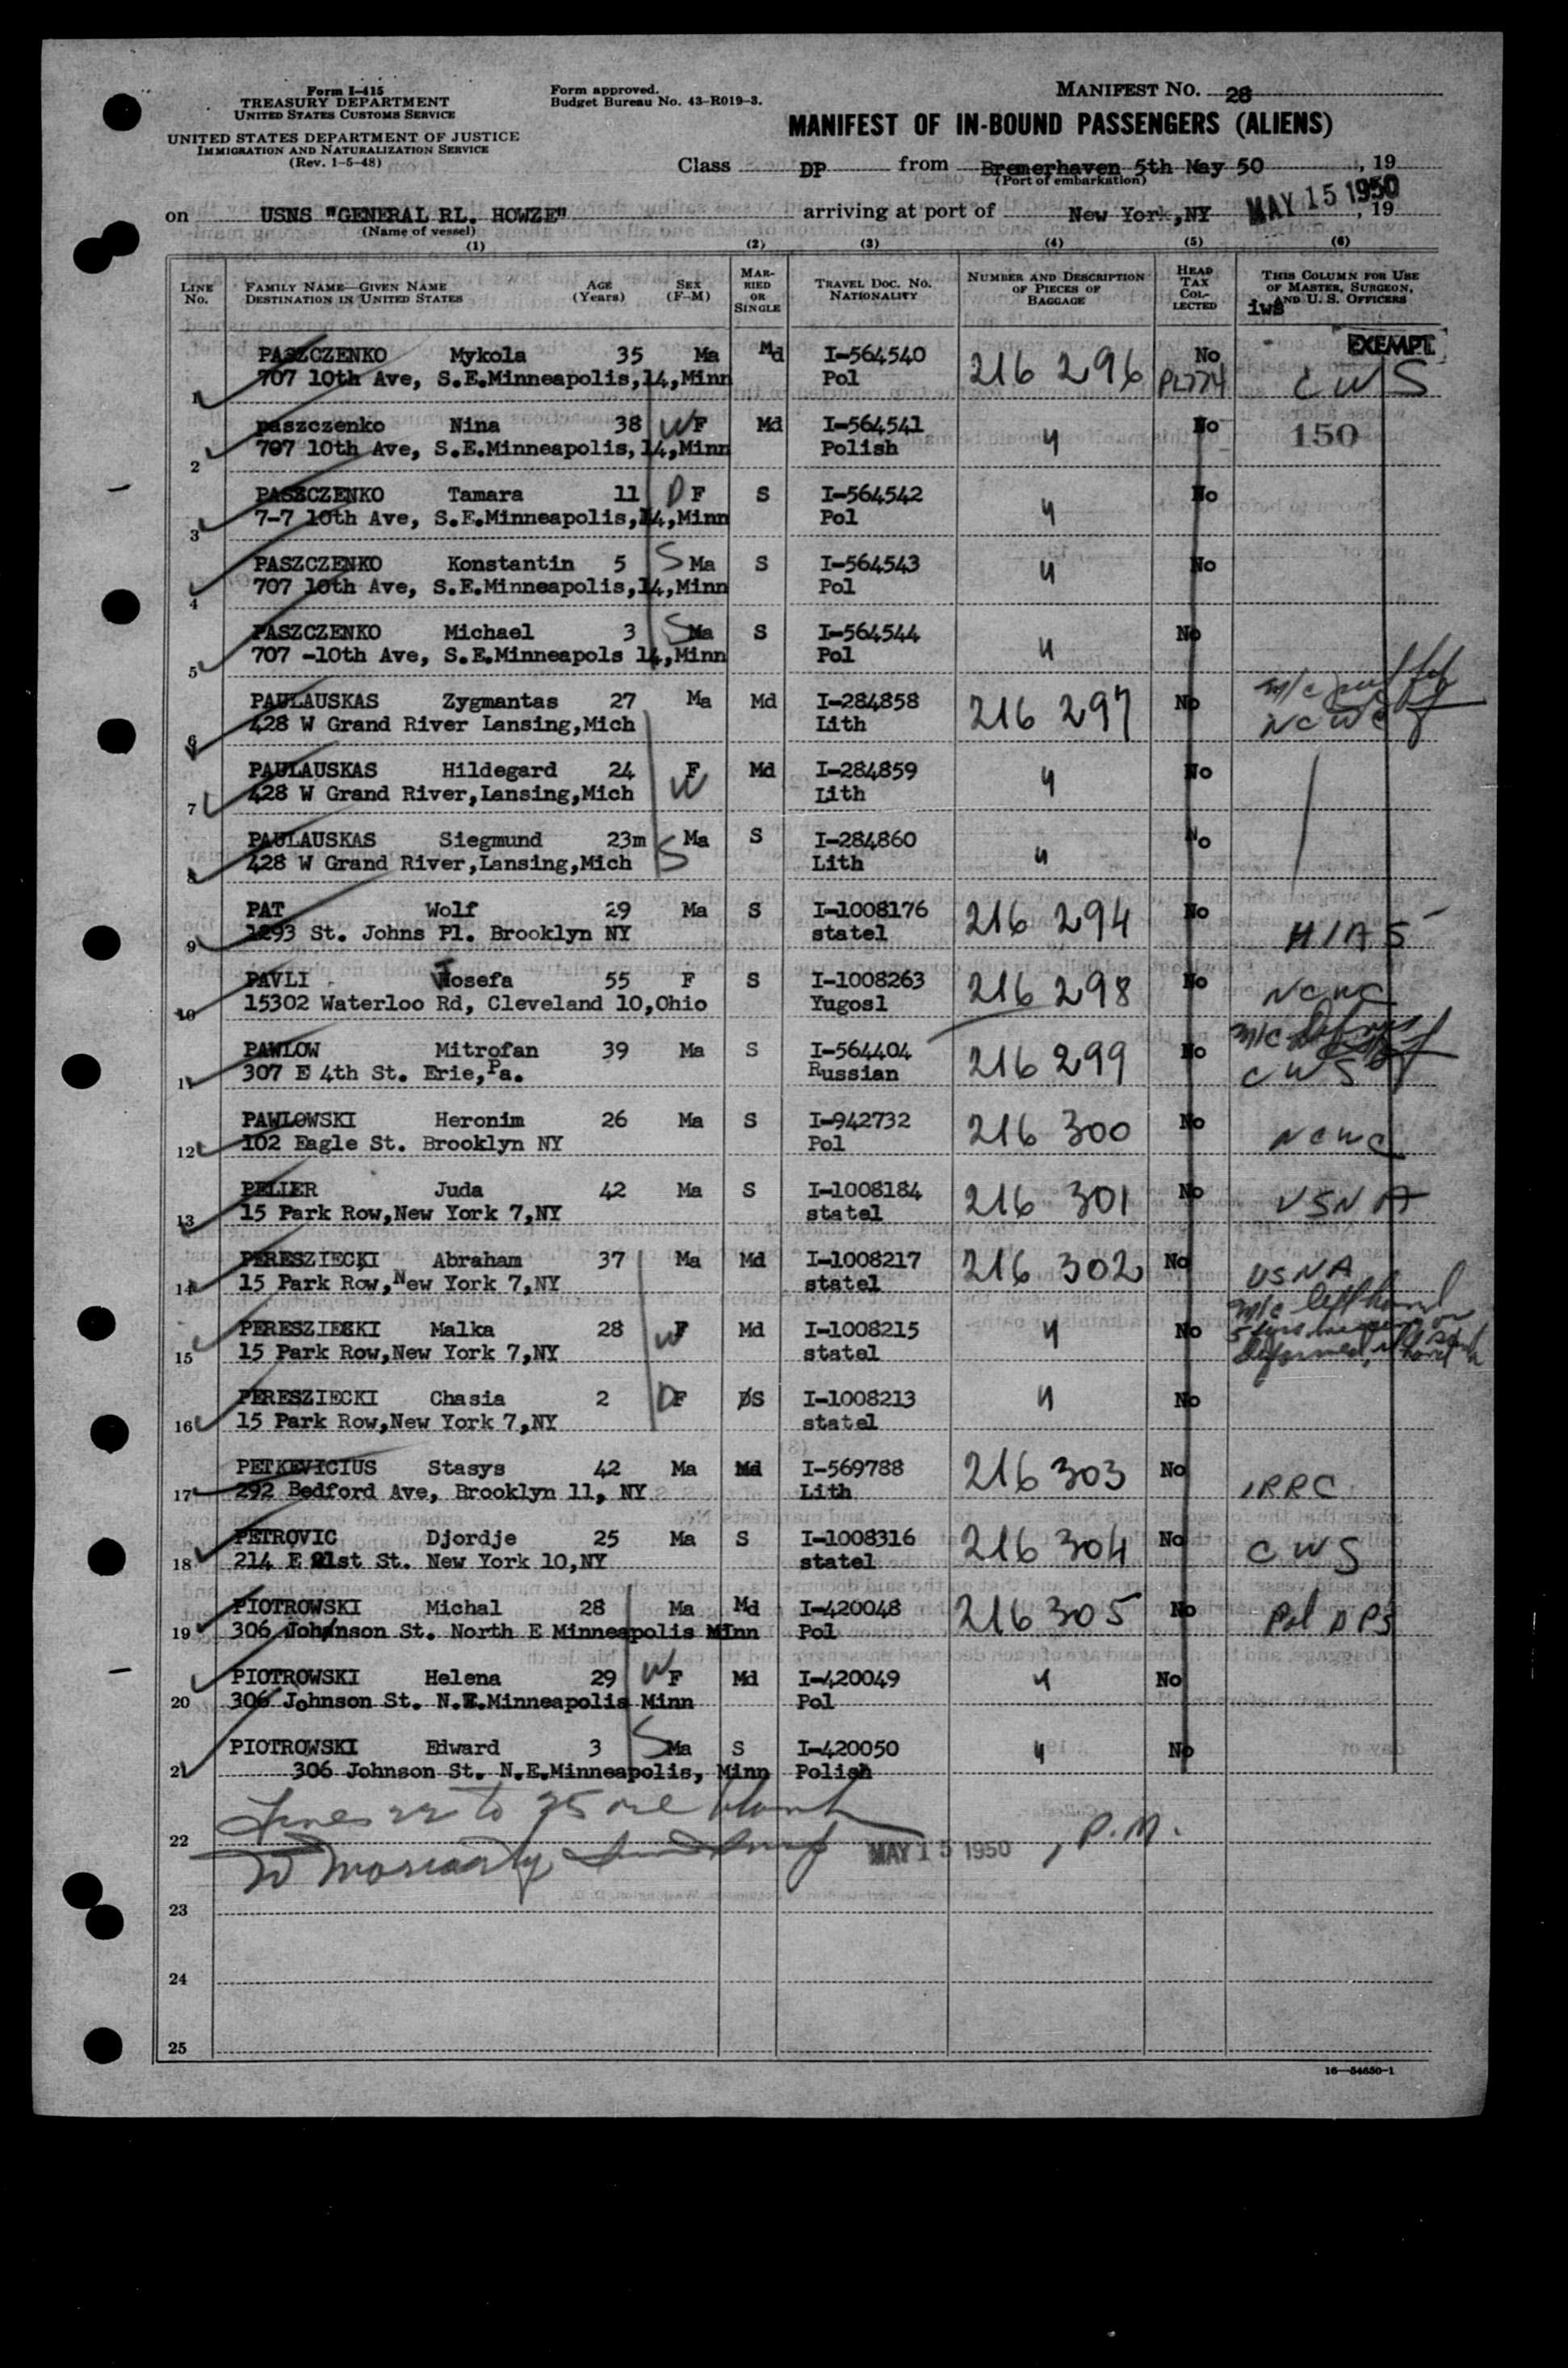 Form I-415
TREASURY DEPARTMENT
UNITED STATES CUSTOMS SERVICE
UNITED STATES DEPARTMENT OF JUSTICE
IMMIGRATION AND NATURALIZATION SERVICE
(Rev. 1-5-48)
Form approved.
Budget Bureau No. 43-R019-3.
MANIFEST NO. 28
MANIFEST OF IN-BOUND PASSENGERS (ALIENS)
Class DP from Bremerhaven 5th May 50, 19
(Port of embarkation)
on USNS "GENERAL RL. HOWZE" arriving at port of New York,NY MAY 15 1950, 19
(Name of vessel)
(1) (2) (3) (4) (5) (6)
LINE No. FAMILY NAME—GIVEN NAME DESTINATION IN UNITED STATES AGE (Years) SEX (F-M) MARRIED OR SINGLE TRAVEL DOC. NO. NATIONALITY NUMBER AND DESCRIPTION OF PIECES OF BAGGAGE HEAD TAX COLLECTED THIS COLUMN FOR USE OF MASTER, SURGEON, AND U. S. OFFICERS
iws
EXEMPT
PASZCZENKO Mykola 35 Ma Md I-564540 216 296 No
1 707 10th Ave, S.E.Minneapolis,14,Minn Pol PL774 CWS
paszczenko Nina 38 W F Md I-564541 " No 150
2 707 10th Ave, S.E.Minneapolis,14,Minn Polish
PASZCZENKO Tamara 11 D F S I-564542 " No
3 7-7 10th Ave, S.E.Minneapolis,14,Minn Pol
PASZCZENKO Konstantin 5 S Ma S I-564543 " No
4 707 10th Ave, S.E.Minneapolis,14,Minn Pol
PASZCZENKO Michael 3 S Ma S I-564544 " No
5 707 -10th Ave, S.E.Minneapols 14,Minn Pol
PAULAUSKAS Zygmantas 27 Ma Md I-284858 216 297 No m/c
6 428 W Grand River Lansing,Mich Lith NCWC
PAULAUSKAS Hildegard 24 F Md I-284859 " No
7 428 W Grand River,Lansing,Mich W Lith
PAULAUSKAS Siegmund 23m S Ma S I-284860 " No
8 428 W Grand River,Lansing,Mich Lith
PAT Wolf 29 Ma S I-1008176 216 294 No
9 1293 St. Johns Pl. Brooklyn NY statel HIAS
PAVLI Josefa 55 F S I-1008263 216 298 No
10 15302 Waterloo Rd, Cleveland 10,Ohio Yugosl NCWC
PAWLOW Mitrofan 39 Ma S I-564404 216 299 No m/c
11 307 E 4th St. Erie,Pa. Russian CWS
PAWLOWSKI Heronim 26 Ma S I-942732 216 300 No
12 102 Eagle St. Brooklyn NY Pol NCWC
PELIER Juda 42 Ma S I-1008184 216 301 No
13 15 Park Row,New York 7,NY statel USNA
PERESZIECKI Abraham 37 Ma Md I-1008217 216 302 No
14 15 Park Row,New York 7,NY statel USNA
PERESZIESKI Malka 28 W F Md I-1008215 " No m/c left hand
15 15 Park Row,New York 7,NY statel deformed
PERESZIECKI Chasia 2 D F S I-1008213 " No
16 15 Park Row,New York 7,NY statel
PETKEVICIUS Stasys 42 Ma Md I-569788 216 303 No
17 292 Bedford Ave, Brooklyn 11, NY Lith IRRC
PETROVIC Djordje 25 Ma S I-1008316 216 304 No
18 214 E 21st St. New York 10,NY statel CWS
PIOTROWSKI Michal 28 Ma Md I-420048 216 305 No
19 306 Johnson St. North E Minneapolis MInn Pol Pol DPS
PIOTROWSKI Helena 29 W F Md I-420049 " No
20 306 Johnson St. N.E.Minneapolis Minn Pol
PIOTROWSKI Edward 3 S Ma S I-420050 " No
21 306 Johnson St. N.E.Minneapolis, Minn Polish
Lines 22 to 25 are blank
22 W Moriarty MAY 15 1950, P.M.
23
24
25
16—54650-1